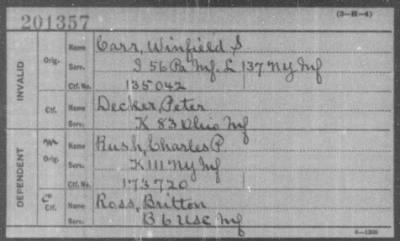 (3—H—4)
201357
INVALID
Orig. Name Carr, Winfield S
Serv. I 56 Pa Inf. L 137 NY Inf
Ctf. No. 135042
Ctf. Name Decker, Peter
Serv. K 83 Ohio Inf
DEPENDENT
Orig. Name Rush, Charles P.
Serv. K 111 NY Inf
Ctf. No. 173720
Ctf. Name Ross, Britton
Serv. B 6 USC Inf